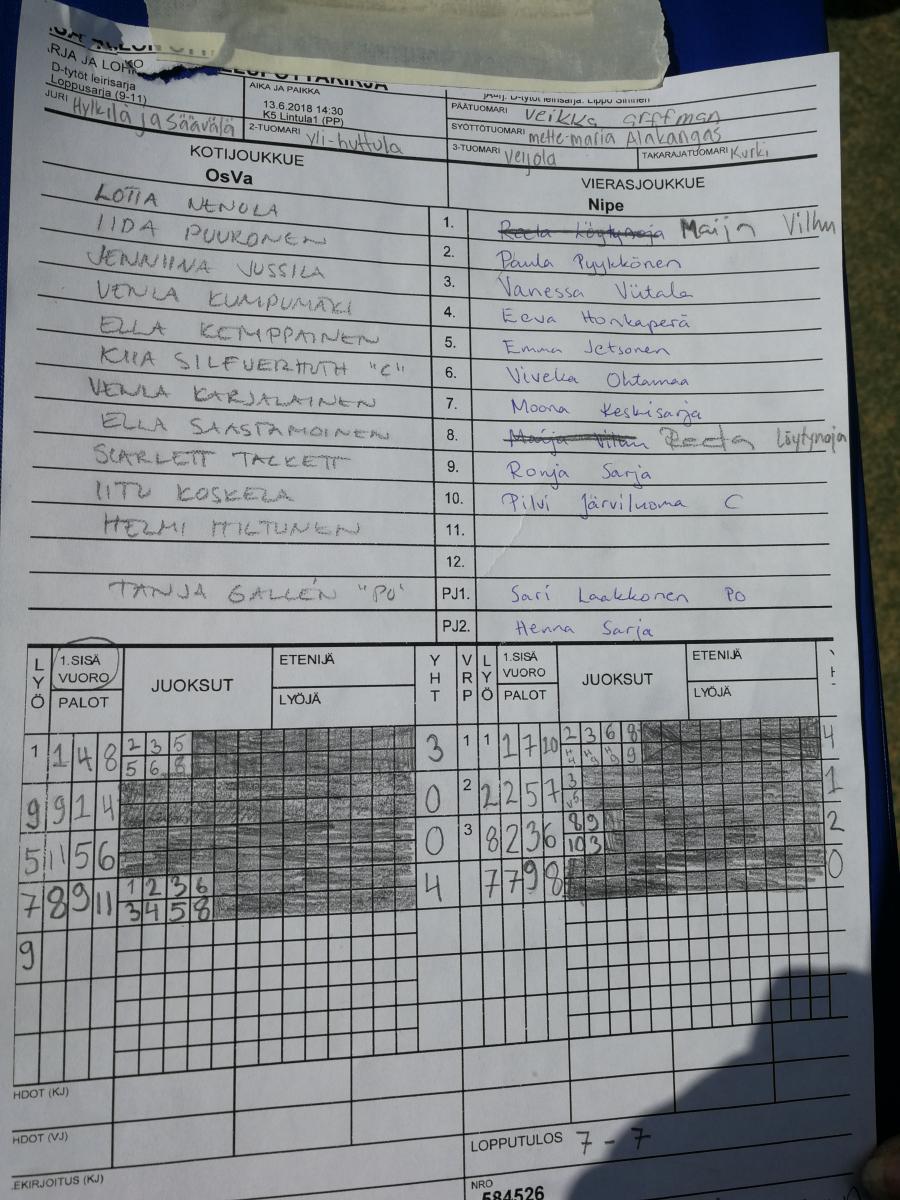 D-tytöt leirisarja
Loppusarja (9-11)
JURI Hylkilä ja Säävälä
AIKA JA PAIKKA
13.6.2018 14:30
K5 Lintula1 (PP)
2-TUOMARI yli-huttula
PÄÄTUOMARI Veikka Graffman
SYÖTTÖTUOMARI mette-maria Alakangas
3-TUOMARI Veijola TAKARAJATUOMARI Kurki
KOTIJOUKKUE VIERASJOUKKUE
OsVa Nipe
LOTTA NENOLA 1. Reeta Löytynoja Maija Vilhu
IIDA PUUKONEN 2. Paula Pyykkönen
JENNIINA JUSSILA 3. Vanessa Viitala
VENLA KUMPUMÄKI 4. Eeva Honkaperä
ELLA KEMPPAINEN 5. Emma Jetsonen
KIIA SILFVERHUTH "C" 6. Viveka Ohtamaa
VENLA KARJALAINEN 7. Moona Keskisarja
ELLA SAASTAMOINEN 8. Maija Vilhu Reeta Löytynoja
SCARLETT TACKETT 9. Ronja Sarja
IITU KOSKELA 10. Pilvi Järviluoma C
HELMI HILTUNEN 11.
12.
TANJA GALLÉN "PO" PJ1. Sari Laakkonen PO
PJ2. Henna Sarja
LYÖ 1.SISÄ VUORO PALOT JUOKSUT ETENIJÄ LYÖJÄ YHT VRP LYÖ 1.SISÄ VUORO PALOT JUOKSUT ETENIJÄ LYÖJÄ
1 1 4 8 2 3 5 3 1 1 1 7 10 2 3 6 8 4
5 6 8 9
9 9 1 4 0 2 2 2 5 7 3 1
5 11 5 6 0 3 8 2 3 6 8 9 2
10 3
7 8 9 11 1 2 3 6 4 7 7 9 8 0
3 4 5 8
9
HDOT (KJ)
HDOT (VJ)
LOPPUTULOS 7 - 7
EKIRJOITUS (KJ)
NRO
584526